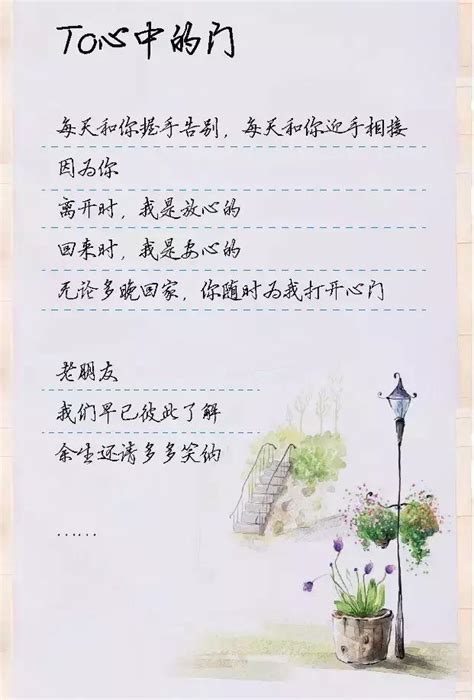 To心中的门
每天和你握手告别，每天和你迎手相接
因为你
离开时，我是放心的
回来时，我是安心的
无论多晚回家，你随时为我打开心门
老朋友
我们早已彼此了解
余生还请多多笑纳
……